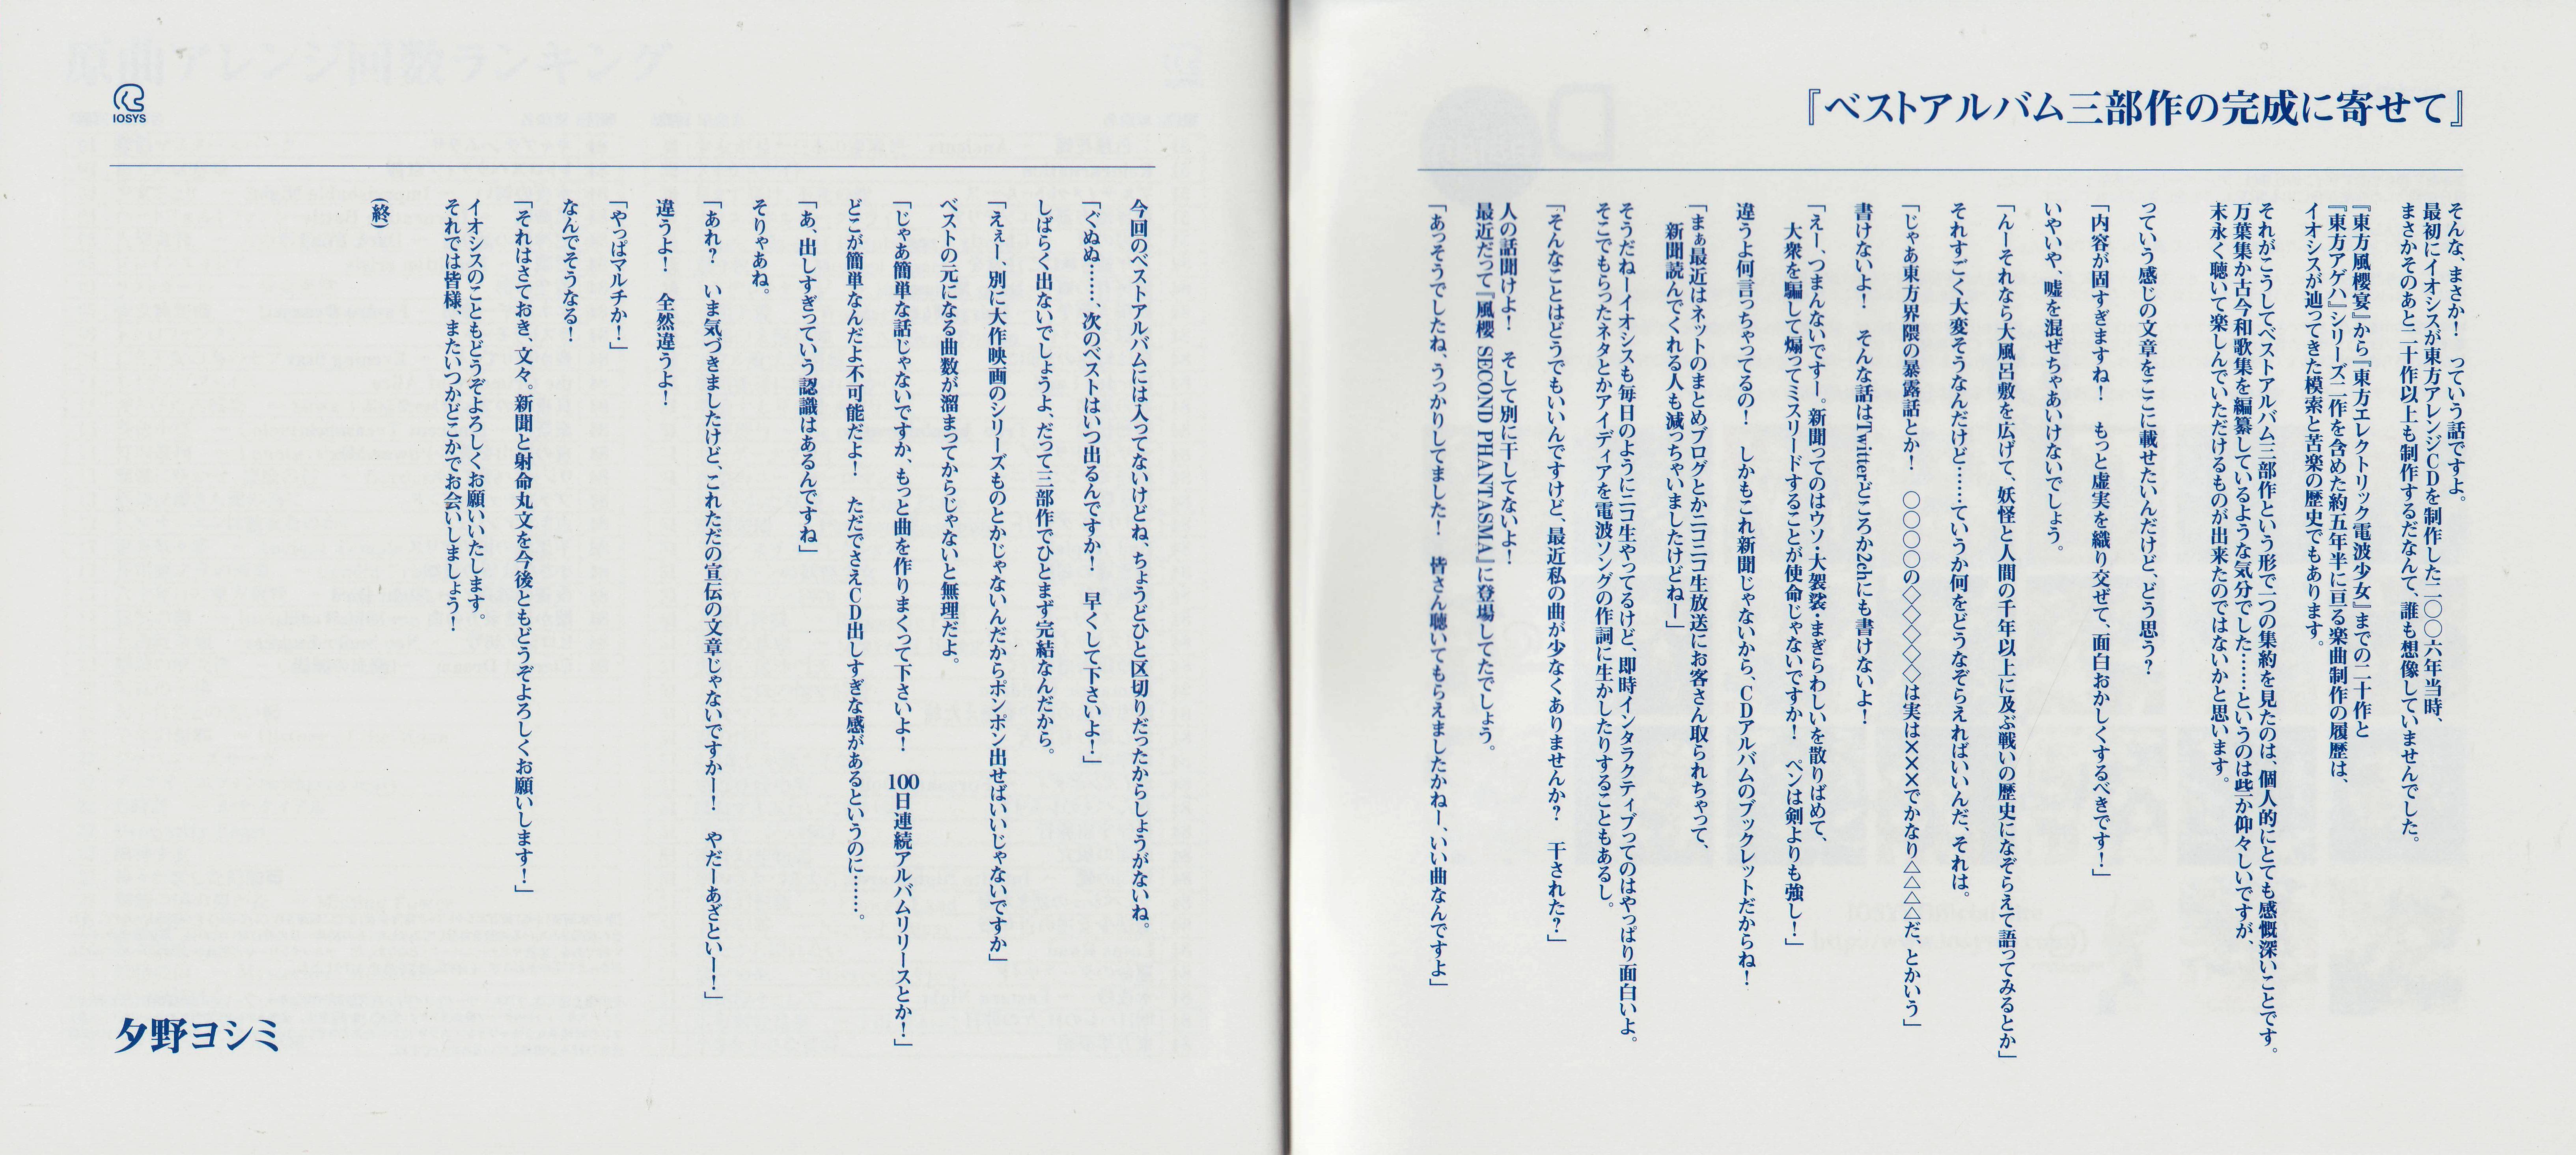 『ベストアルバム三部作の完成に寄せて』
そんな、まさか！　っていう話ですよ。
最初にイオシスが東方アレンジCDを制作した二〇〇六年当時、
まさかそのあと二十作以上も制作するだなんて、誰も想像していませんでした。
『東方風櫻宴』から『東方エレクトリック電波少女』までの二十作と
『東方アゲハ』シリーズ二作を含めた約五年半に亘る楽曲制作の履歴は、
イオシスが辿ってきた模索と苦楽の歴史でもあります。
それがこうしてベストアルバム三部作という形で一つの集約を見たのは、個人的にとても感慨深いことです。
万葉集か古今和歌集を編纂しているような気分でした……というのは些か仰々しいですが、
末永く聴いて楽しんでいただけるものが出来たのではないかと思います。
っていう感じの文章をここに載せたいんだけど、どう思う？
「内容が固すぎますね！　もっと虚実を織り交ぜて、面白おかしくするべきです！」
いやいや、嘘を混ぜちゃあいけないでしょう。
「んーそれなら大風呂敷を広げて、妖怪と人間の千年以上に及ぶ戦いの歴史になぞらえて語ってみるとか」
それすごく大変そうなんだけど……ていうか何をどうなぞらえればいいんだ、それは。
「じゃあ東方界隈の暴露話とか！　〇〇〇〇の◇◇◇◇◇は実は×××でかなり△△△△だ、とかいう」
書けないよ！　そんな話はTwitterどころか2chにも書けないよ！
「えー、つまんないですー。新聞ってのはウソ・大袈裟・まぎらわしいを散りばめて、
大衆を騙して煽ってミスリードすることが使命じゃないですか！　ペンは剣よりも強し！」
違うよ何言っちゃってるの！　しかもこれ新聞じゃないから、CDアルバムのブックレットだからね！
「まぁ最近はネットのまとめブログとかニコニコ生放送にお客さん取られちゃって、
新聞読んでくれる人も減っちゃいましたけどねー」
そうだねーイオシスも毎日のようにニコ生やってるけど、即時インタラクティブってのはやっぱり面白いよ。
そこでもらったネタとかアイディアを電波ソングの作詞に生かしたりすることもあるし。
「そんなことはどうでもいいんですけど、最近私の曲が少なくありませんか？　干された？」
人の話聞けよ！　そして別に干してないよ！
最近だって『風櫻 SECOND PHANTASMA』に登場してたでしょう。
「あっそうでしたね、うっかりしてました！　皆さん聴いてもらえましたかねー、いい曲なんですよ」
今回のベストアルバムには入ってないけどね、ちょうどひと区切りだったからしょうがないね。
「ぐぬぬ……、次のベストはいつ出るんですか！　早くして下さいよ！」
しばらく出ないでしょうよ、だって三部作でひとまず完結なんだから。
「ええー、別に大作映画のシリーズものとかじゃないんだからポンポン出せばいいじゃないですか」
ベストの元になる曲数が溜まってからじゃないと無理だよ。
「じゃあ簡単な話じゃないですか、もっと曲を作りまくって下さいよ！　100日連続アルバムリリースとか！」
どこが簡単なんだよ不可能だよ！　ただでさえCD出しすぎな感があるというのに……。
「あ、出しすぎっていう認識はあるんですね」
そりゃあね。
「あれ？　いま気づきましたけど、これただの宣伝の文章じゃないですかー！　やだーあざといー！」
違うよ！　全然違うよ！
「やっぱマルチか！」
なんでそうなる！
「それはさておき、文々。新聞と射命丸文を今後ともどうぞよろしくお願いします！」
イオシスのこともどうぞよろしくお願いいたします。
それでは皆様、またいつかどこかでお会いしましょう！
（終）
夕野ヨシミ
IOSYS